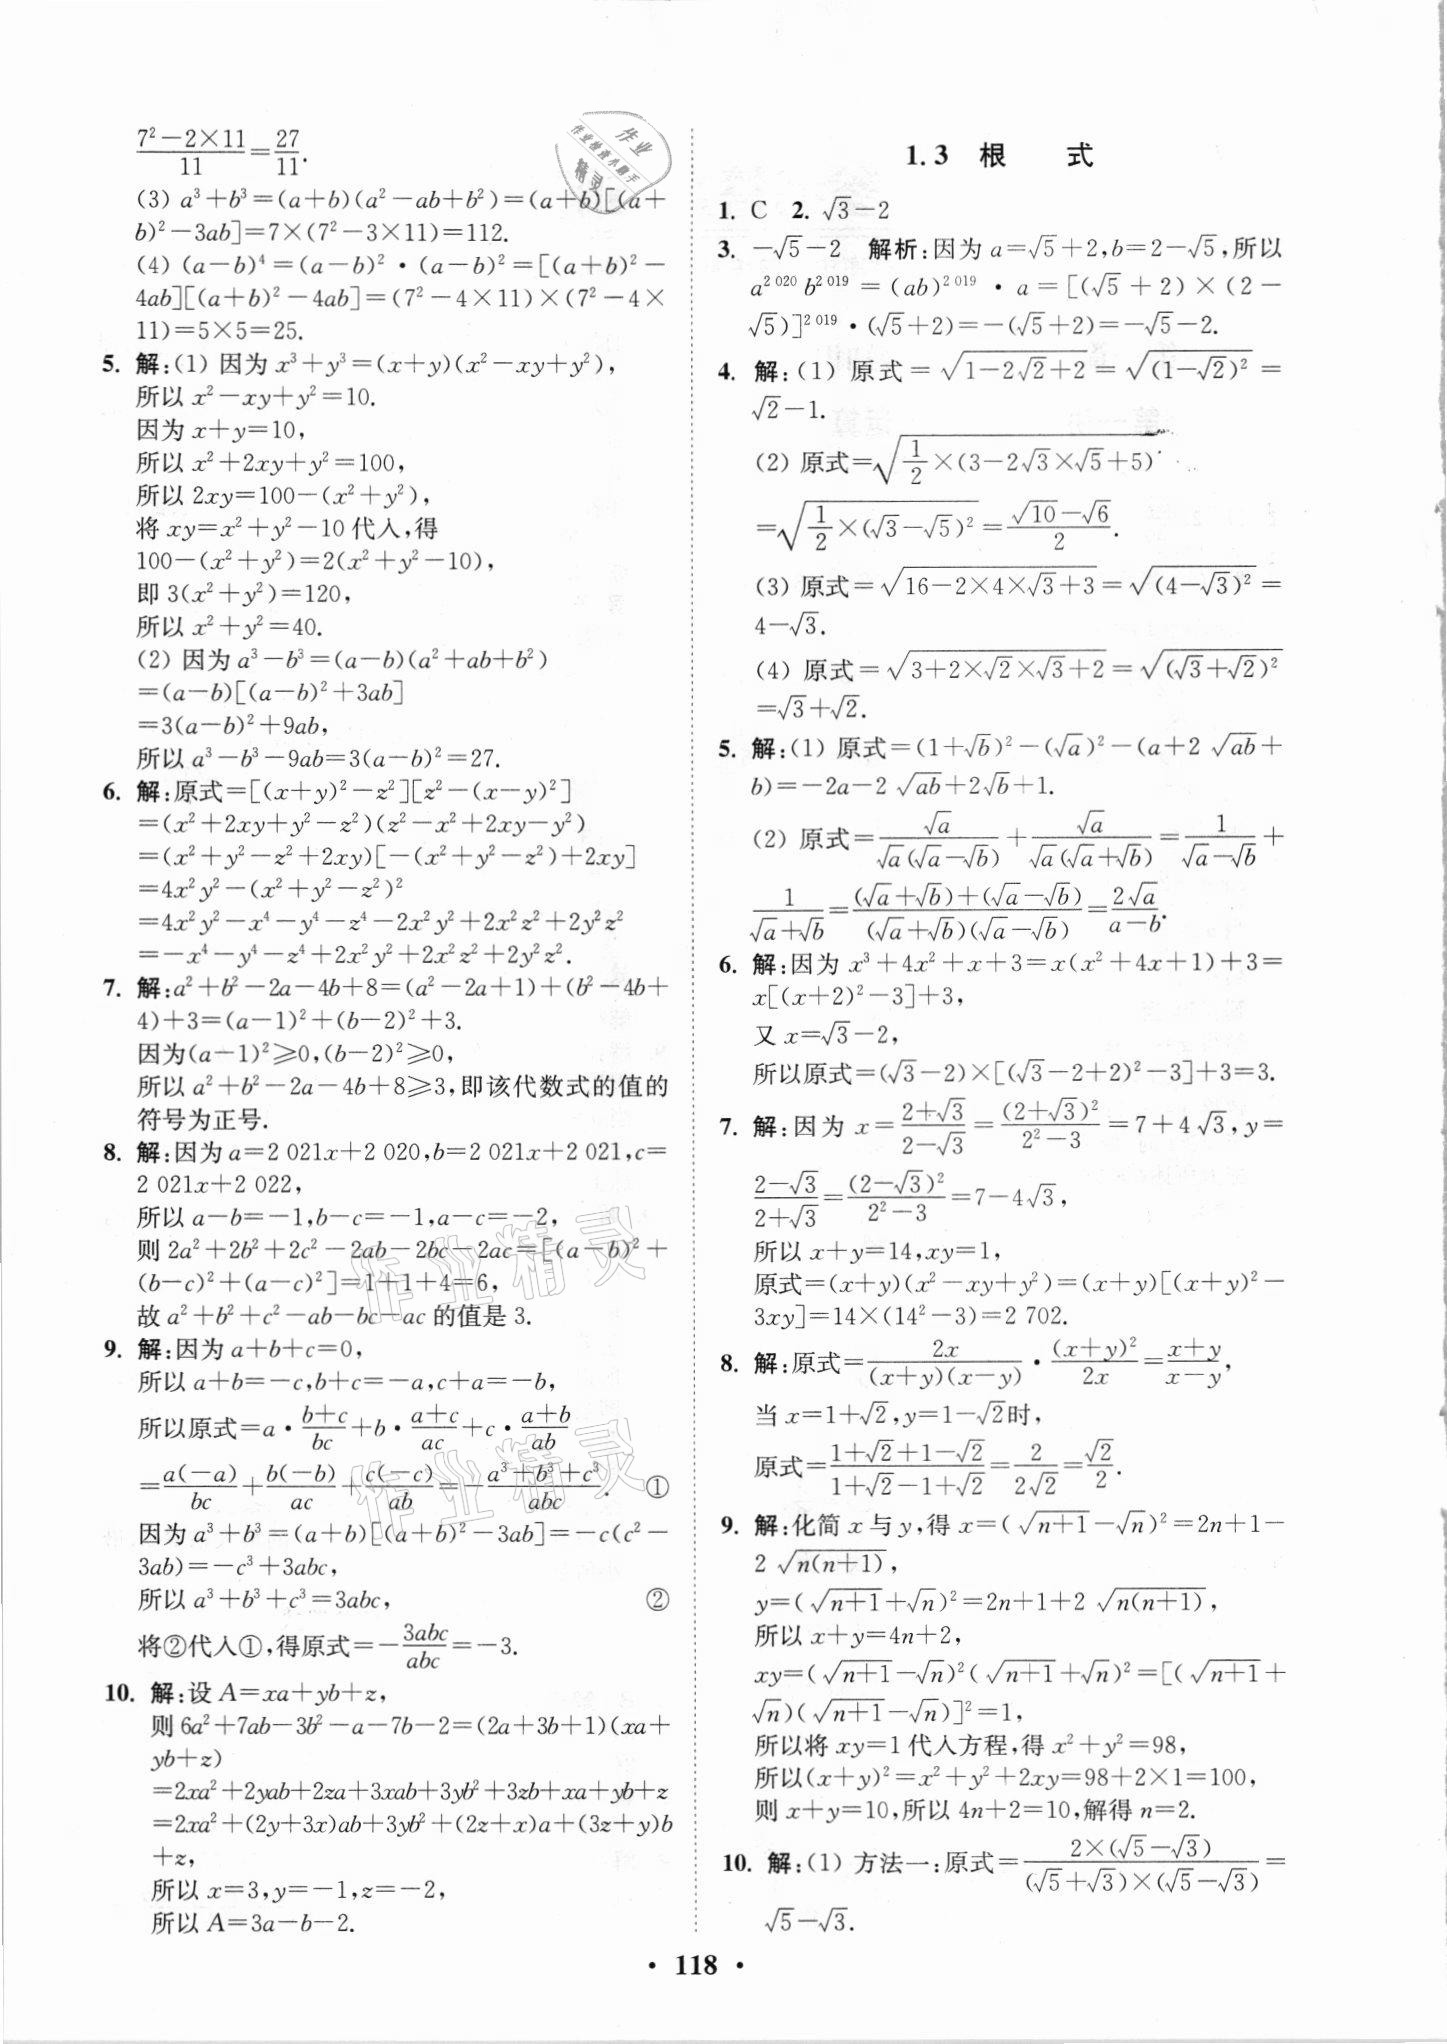 7²-2×11/11=27/11.
(3) a³+b³=(a+b)(a²-ab+b²)=(a+b)[(a+
b)²-3ab]=7×(7²-3×11)=112.
(4) (a-b)⁴=(a-b)²·(a-b)²=[(a+b)²-
4ab][(a+b)²-4ab]=(7²-4×11)×(7²-4×
11)=5×5=25.
5. 解:(1) 因为 x³+y³=(x+y)(x²-xy+y²),
所以 x²-xy+y²=10.
因为 x+y=10,
所以 x²+2xy+y²=100,
所以 2xy=100-(x²+y²),
将 xy=x²+y²-10 代入,得
100-(x²+y²)=2(x²+y²-10),
即 3(x²+y²)=120,
所以 x²+y²=40.
(2) 因为 a³-b³=(a-b)(a²+ab+b²)
=(a-b)[(a-b)²+3ab]
=3(a-b)²+9ab,
所以 a³-b³-9ab=3(a-b)²=27.
6. 解:原式=[(x+y)²-z²][z²-(x-y)²]
=(x²+2xy+y²-z²)(z²-x²+2xy-y²)
=(x²+y²-z²+2xy)[-(x²+y²-z²)+2xy]
=4x²y²-(x²+y²-z²)²
=4x²y²-x⁴-y⁴-z⁴-2x²y²+2x²z²+2y²z²
=-x⁴-y⁴-z⁴+2x²y²+2x²z²+2y²z².
7. 解:a²+b²-2a-4b+8=(a²-2a+1)+(b²-4b+
4)+3=(a-1)²+(b-2)²+3.
因为(a-1)²⩾0,(b-2)²⩾0,
所以 a²+b²-2a-4b+8⩾3,即该代数式的值的
符号为正号.
8. 解:因为 a=2 021x+2 020,b=2 021x+2 021,c=
2 021x+2 022,
所以 a-b=-1,b-c=-1,a-c=-2,
则 2a²+2b²+2c²-2ab-2bc-2ac=[(a-b)²+
(b-c)²+(a-c)²]=1+1+4=6,
故 a²+b²+c²-ab-bc-ac 的值是 3.
9. 解:因为 a+b+c=0,
所以 a+b=-c,b+c=-a,c+a=-b,
所以原式=a·(b+c)/bc+b·(a+c)/ac+c·(a+b)/ab
=a(-a)/bc+b(-b)/ac+c(-c)/ab=-(a³+b³+c³)/abc. ①
因为 a³+b³=(a+b)[(a+b)²-3ab]=-c(c²-
3ab)=-c³+3abc,
所以 a³+b³+c³=3abc, ②
将②代入①,得原式=-3abc/abc=-3.
10. 解:设 A=xa+yb+z,
则 6a²+7ab-3b²-a-7b-2=(2a+3b+1)(xa+
yb+z)
=2xa²+2yab+2za+3xab+3yb²+3zb+xa+yb+z
=2xa²+(2y+3x)ab+3yb²+(2z+x)a+(3z+y)b
+z,
所以 x=3,y=-1,z=-2,
所以 A=3a-b-2.
1.3 根 式
1. C 2. √3-2
3. -√5-2 解析:因为 a=√5+2,b=2-√5,所以
a²⁰²⁰b²⁰¹⁹=(ab)²⁰¹⁹·a=[(√5+2)×(2-
√5)]²⁰¹⁹·(√5+2)=-(√5+2)=-√5-2.
4. 解:(1) 原式=√(1-2√2+2)=√((1-√2)²)=
√2-1.
(2) 原式=√(1/2×(3-2√3×√5+5))
=√(1/2×(√3-√5)²)=(√10-√6)/2.
(3) 原式=√(16-2×4×√3+3)=√((4-√3)²)=
4-√3.
(4) 原式=√(3+2×√2×√3+2)=√((√3+√2)²)
=√3+√2.
5. 解:(1) 原式=(1+√b)²-(√a)²-(a+2√ab+
b)=-2a-2√ab+2√b+1.
(2) 原式=√a/(√a(√a-√b))+√a/(√a(√a+√b))=1/(√a-√b)+
1/(√a+√b)=((√a+√b)+(√a-√b))/((√a+√b)(√a-√b))=2√a/(a-b).
6. 解:因为 x³+4x²+x+3=x(x²+4x+1)+3=
x[(x+2)²-3]+3,
又 x=√3-2,
所以原式=(√3-2)×[(√3-2+2)²-3]+3=3.
7. 解:因为 x=(2+√3)/(2-√3)=(2+√3)²/(2²-3)=7+4√3,y=
(2-√3)/(2+√3)=(2-√3)²/(2²-3)=7-4√3,
所以 x+y=14,xy=1,
原式=(x+y)(x²-xy+y²)=(x+y)[(x+y)²-
3xy]=14×(14²-3)=2 702.
8. 解:原式=2x/((x+y)(x-y))·(x+y)²/2x=(x+y)/(x-y),
当 x=1+√2,y=1-√2时,
原式=(1+√2+1-√2)/(1+√2-1+√2)=2/(2√2)=√2/2.
9. 解:化简 x 与 y,得 x=(√(n+1)-√n)²=2n+1-
2√(n(n+1)),
y=(√(n+1)+√n)²=2n+1+2√(n(n+1)),
所以 x+y=4n+2,
xy=(√(n+1)-√n)²(√(n+1)+√n)²=[(√(n+1)+
√n)(√(n+1)-√n)]²=1,
所以将 xy=1 代入方程,得 x²+y²=98,
所以(x+y)²=x²+y²+2xy=98+2×1=100,
则 x+y=10,所以 4n+2=10,解得 n=2.
10. 解:(1) 方法一:原式=2×(√5-√3)/((√5+√3)×(√5-√3))=
√5-√3.
· 118 ·
作业精灵
作业精灵
作业
精灵